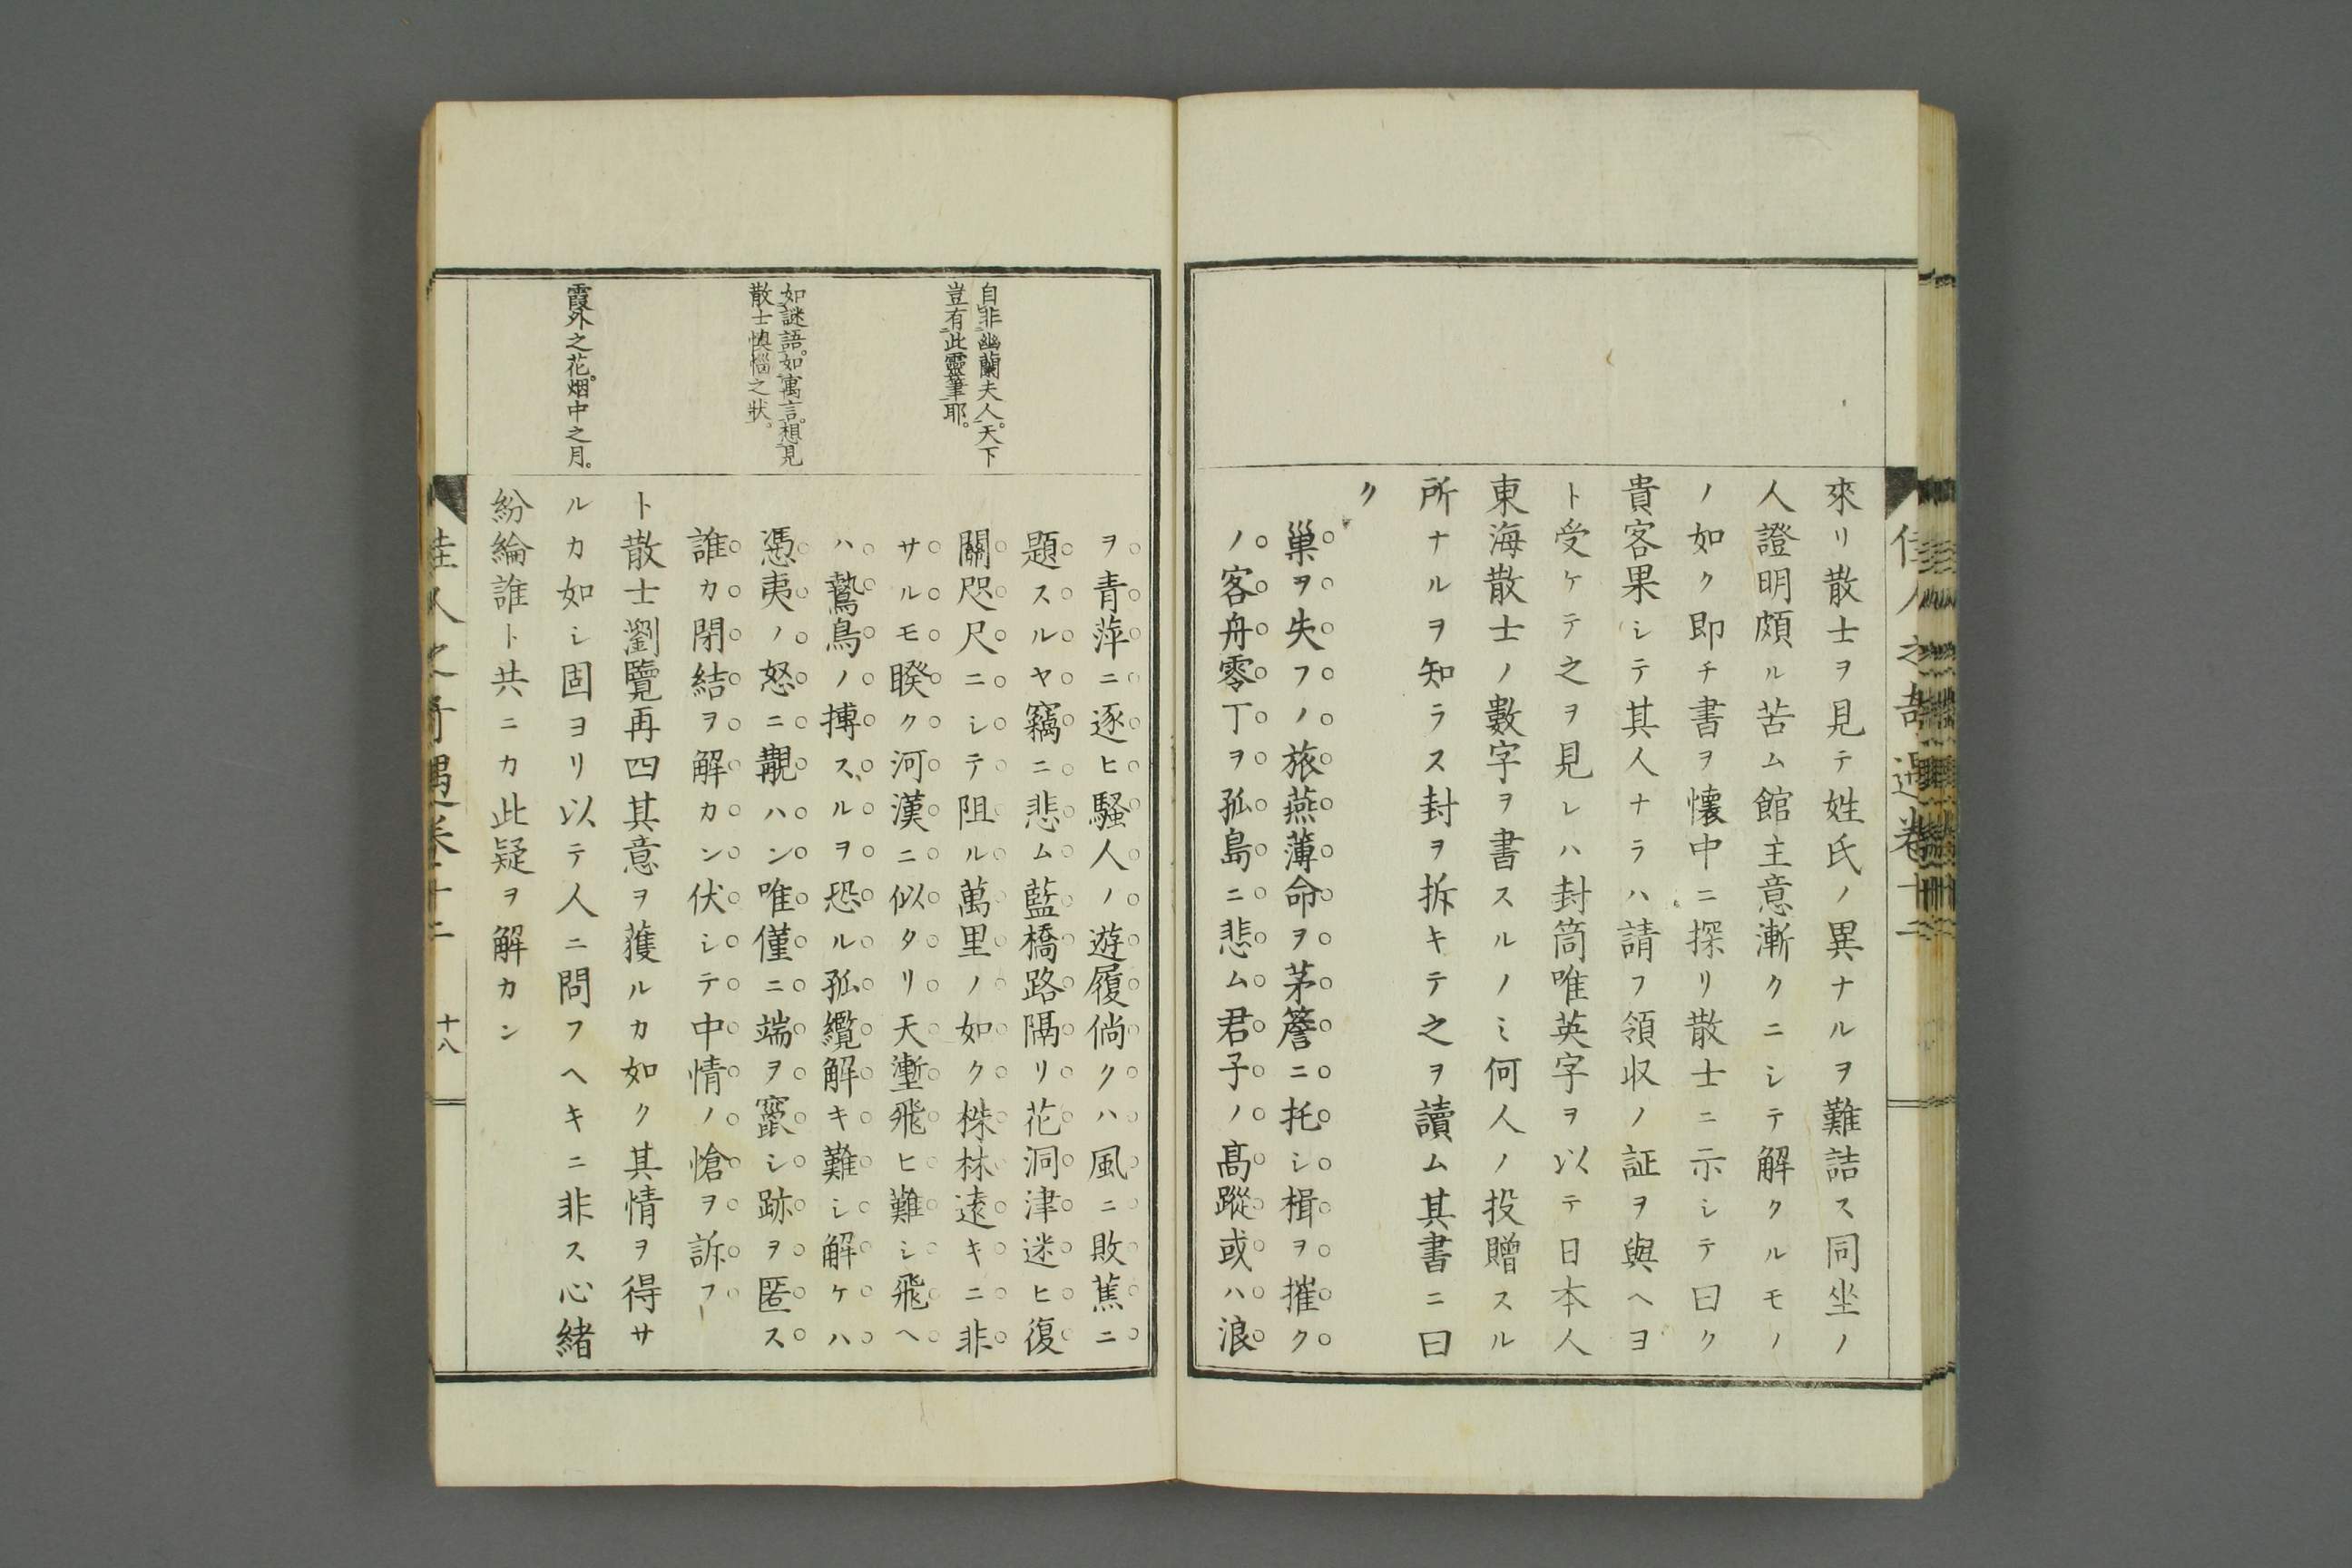 佳人之奇遇卷十二
來リ散士ヲ見テ姓氏ノ異ナルヲ難詰ス同坐ノ
人證明頗ル苦ム館主意漸クニシテ解クルモノ
ノ如ク即チ書ヲ懷中ニ探リ散士ニ示シテ曰ク
貴客果シテ其人ナラハ請フ領収ノ証ヲ與ヘヨ
ト受ケテ之ヲ見レハ封筒唯英字ヲ以テ日本人
東海散士ノ數字ヲ書スルノミ何人ノ投贈スル
所ナルヲ知ラス封ヲ拆キテ之ヲ讀ム其書ニ曰
ク
巢ヲ失フノ旅燕薄命ヲ茅簷ニ托シ楫ヲ摧ク
ノ客舟零丁ヲ孤島ニ悲ム君子ノ髙蹤或ハ浪
自非幽蘭夫人。天下
豈有此靈筆耶。
如謎語。如寓言。想見
散士懊惱之状。
霞外之花。烟中之月。
ヲ青萍ニ逐ヒ騷人ノ遊履倘クハ風ニ敗蕉ニ
題スルヤ竊ニ悲ム藍橋路隔リ花洞津迷ヒ復
關咫尺ニシテ阻ル萬里ノ如ク楪林遠キニ非
サルモ睽ク河漢ニ似タリ天塹飛ヒ難シ飛ヘ
ハ鷙鳥ノ搏スルヲ恐ル孤纜解キ難シ解ケハ
馮夷ノ怒ニ覯ハン唯僅ニ端ヲ竄シ跡ヲ匿ス
誰カ閉結ヲ解カン伏シテ中情ノ愴ヲ訴フ
ト散士瀏覽再四其意ヲ獲ルカ如ク其情ヲ得サ
ルカ如シ固ヨリ以テ人ニ問フヘキニ非ス心緒
紛綸誰ト共ニカ此疑ヲ解カン
佳人之奇遇卷十二 十八